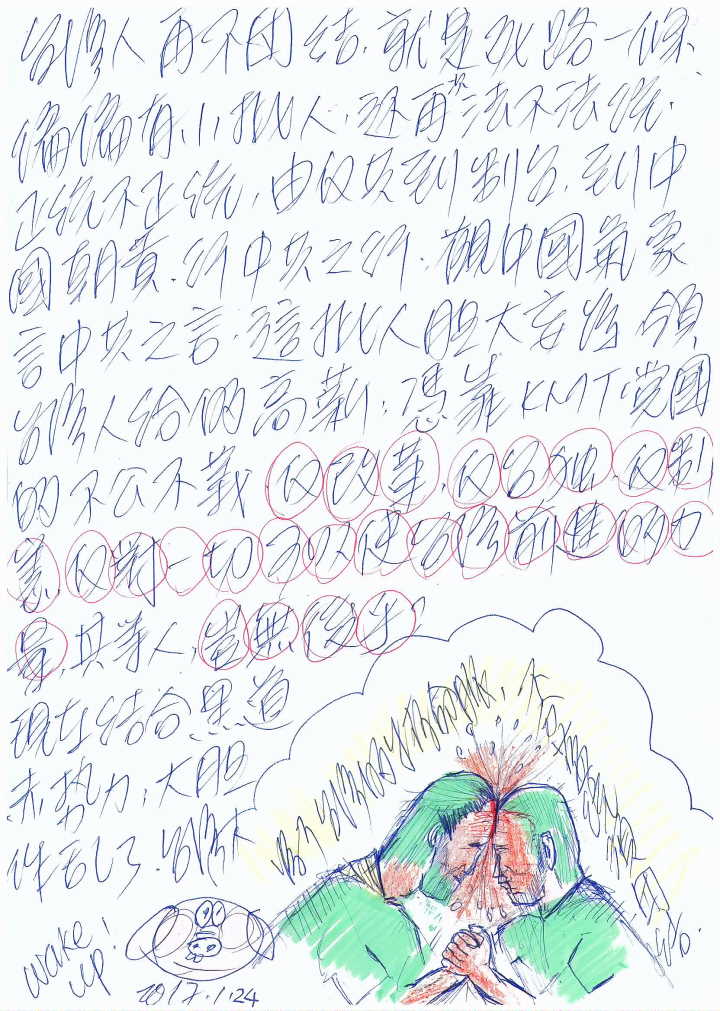 台灣人再不團結，就是死路一條、
偏偏有小批人，還再 法不法統，
正統不正統，由仇共到制台，到中
國朝貢，行中共之行，觀中國氣象
言中共之言，這批人胆大妄 領
台灣人給的高薪，憑靠KMT党國
的不公不義 仇改革，仇台独，仇制
憲，仇對一切可以使台灣前進的力
量，其等人，豈無後乎？
現在結合黑道
赤勢力，大胆
作乱了，台灣人
wake
up!
2017.1.24
團結